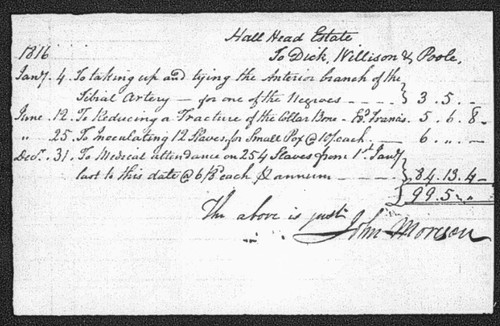 Hall Head Estate
1816 To Dick, Willison & Poole,
Jany. 4. To taking up and tying the Anterior branch of the
Tibial Artery — for one of the Negroes — } 3 . 5 . „
June . 12. To Reducing a Fracture of the Collar Bone - Francis. 5 . 6 . 8
„ . 25. To Inoculating 12 Slaves, for Small Pox @ 10/ each . — 6 . „ . —
Decr. 31. To Medical attendance on 254 Slaves from 1st Jany.
last to this date @ 6/8 each annum — } 84 . 13 . 4
£99 . 5 . „
The above is just
John Morison